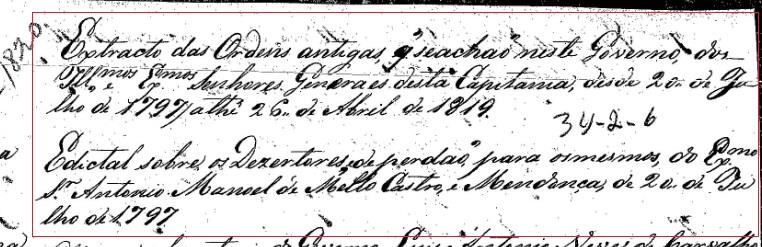 1830.
Extracto das Ordens antigas q' seachaõ neste Governo, dos
Ill.mos e Ex.mos Senhores Generaes desta Capitania, desde 20,, de Ju
lho de 1797 athé 26,, de Abril de 1819.
34-2-6
a
Edictal sobre os Dezertores, e de perdaõ, para os mesmos, do Ex.mo
S.r Antonio Manoel de Mello Castro, e Mendonça, de 20 de Ju
lho de 1797
Governo Luis Antonio Neves de Carvalho